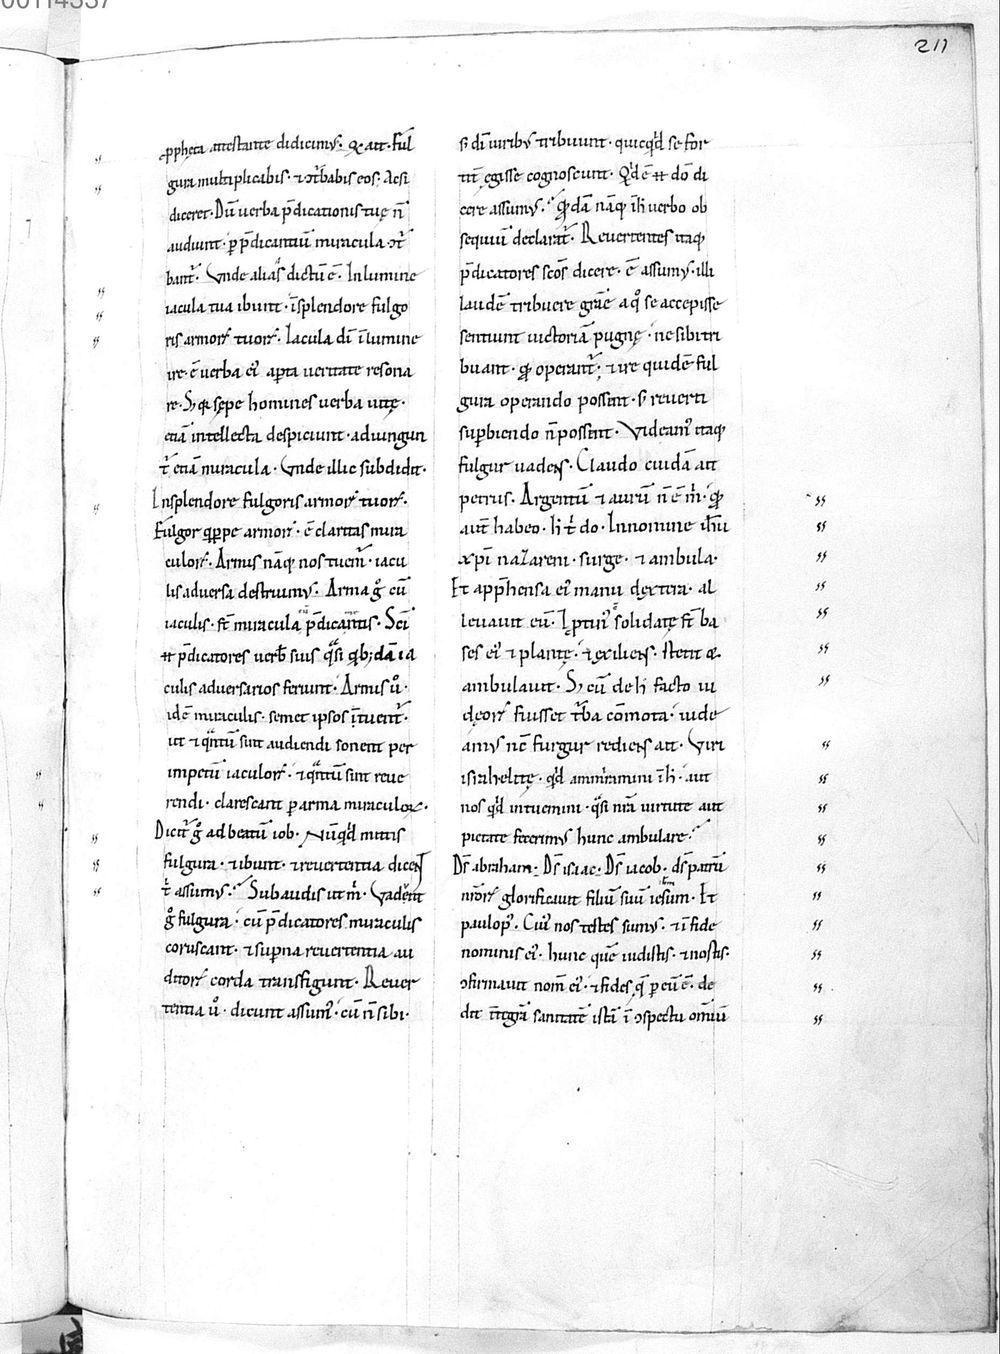 00114337
211
ꝓphęta attestante didicimꝰ· & ait· Ful
gura multiplicabis· ⁊ ↄt᷑babis eos· Acsi
diceret· Dū uerba p̄dicationis tuę n̄
audiunt· ꝑ p̄dicantiū miracula ↄt᷑
bant᷑· Vnde alias dictū ē· In lumine
iacula tua ibunt· ī splendore fulgo
ris armoꝝ tuoꝝ· Iacula dī ī lumine
ire· ē uerba eiꝰ apta ueritate resona
re· Sꝫ qa sępe homines uerba uitę·
etiā intellecta despiciunt· adiungun
t᷑ etiā miracula· Vnde illic subdidit·
In splendore fulgoris armoꝝ tuoꝝ·
Fulgor qͥppe armoꝝ· ē claritas mira
culoꝝ· Armis nāq; nos tuem᷑· iacu
lis aduersa destruimꝰ· Arma gͦ cū
iaculis· st̄ miracula p̄dicantis· Sci
⁊ p̄dicatores uerb̄ suis qͣsi qͥbꝫdā ia
culis aduersarios feriunt· Armis uͦ·
idē miraculis· semet ipsos ītuent᷑·
ut ⁊ qͣntū sint audiendi sonent per
impetū iaculoꝝ· ⁊ qͣntū sint reue
rendi· clarescant ꝑ arma miraculoꝝ·
Dicit᷑ gͦ ad beatū iob· Nūqͥd mittis
fulgura· ⁊ ibunt· ⁊ reuertentia dicen
t̄ assumꝰ· Subaudis ut m̄· Vadent
gͦ fulgura· cū p̄dicatores miraculis
coruscant· ⁊ supna reuerentia au
ditoꝝ corda transfigunt· Reuer
tentia uͦ· dicunt assumꝰ· cū n̄ sibi·
s; dī uiribꝰ tribuunt· quicqͥd se for
tit̄ egisse cognoscunt· Qͥd ē ⁊ dō di
cere assumꝰ· qͣdā nāq; ī h̄ uerbo ob
sequiū declarat᷑· Reuertentes itaq;
p̄dicatores scōs dicere· ē assumꝰ· illi
laudē tribuere grāe a qͦ se accepisse
sentiunt uictoriā pugnę· ne sibi tri
buant· qͦ operant᷑· ⁊ ire quidē ful
gura operando possunt· s; reuerti
supbiendo n̄ possunt· Videamꝰ itaq;
fulgur uadens· Claudo cuidā ait
petrus· Argentū ⁊ aurū n̄ ē m̄· qͦ
aut̄ habeo· h̄ t̄ do· In nomine ihū
xp̄i nazareni· surge· ⁊ ambula·
Et appͪhensa eiꝰ manu dextera· al
leuauit eū· Iptinꝰ solidatę st̄ ba
ses eiꝰ ⁊ plantę· ⁊ exiliens· stetit &
ambulauit· Sꝫ cū de h̄ facto iu
deoꝝ fuisset t᷑ba cōmota· uide
amꝰ nc̄ furgur rediens ait· Viri
isrĺhelitę· qͥd ammiramini ī h̄· aut
nos qͥd intuemini· qͣsi nrā uirtute aut
pietate fecerimꝰ hunc ambulare·
Dš abraham· Dš isaac· Dš iacob· dš patrū
nrōꝝ glorificauit filiū suū iesum· Et
paulopͭ· Cuiꝰ nos testes sumꝰ· ⁊ ī fide
nominis eiꝰ· hunc quē uidistis· ⁊ nostis·
ↄfirmauit nom̄ eiꝰ· ⁊ fides q̄ ꝑ eū ē· de
dit īt̄gā sanitatē istā ī ↄspectu omīū